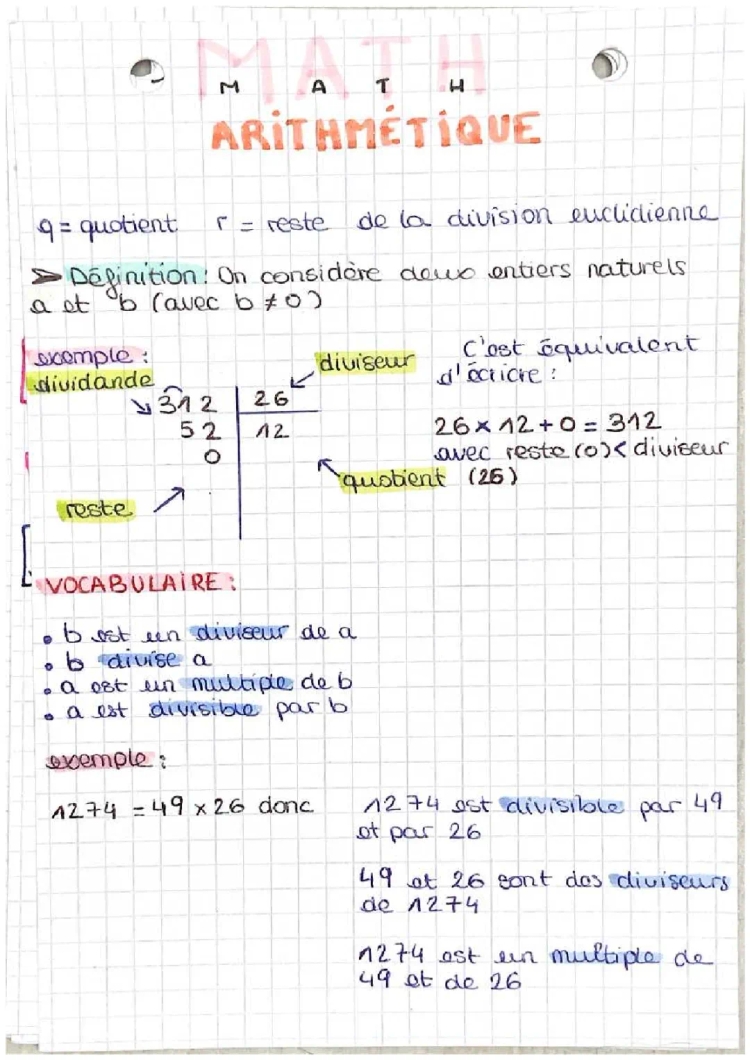 MATH
M A T H
ARITHMÉTIQUE
q = quotient r = reste de la division euclidienne
➤ Définition : On considère deux entiers naturels
a et b (avec b ≠ 0)
exemple :
dividande
diviseur
312 | 26
52 | 12
0
quotient
reste
C'est équivalent
d'écrire :
26 × 12 + 0 = 312
avec reste (0) < diviseur
(26)
VOCABULAIRE :
• b est un diviseur de a
• b divise a
• a est un multiple de b
• a est divisible par b
exemple :
1274 = 49 × 26 donc
1274 est divisible par 49
et par 26
49 et 26 sont des diviseurs
de 1274
1274 est un multiple de
49 et de 26